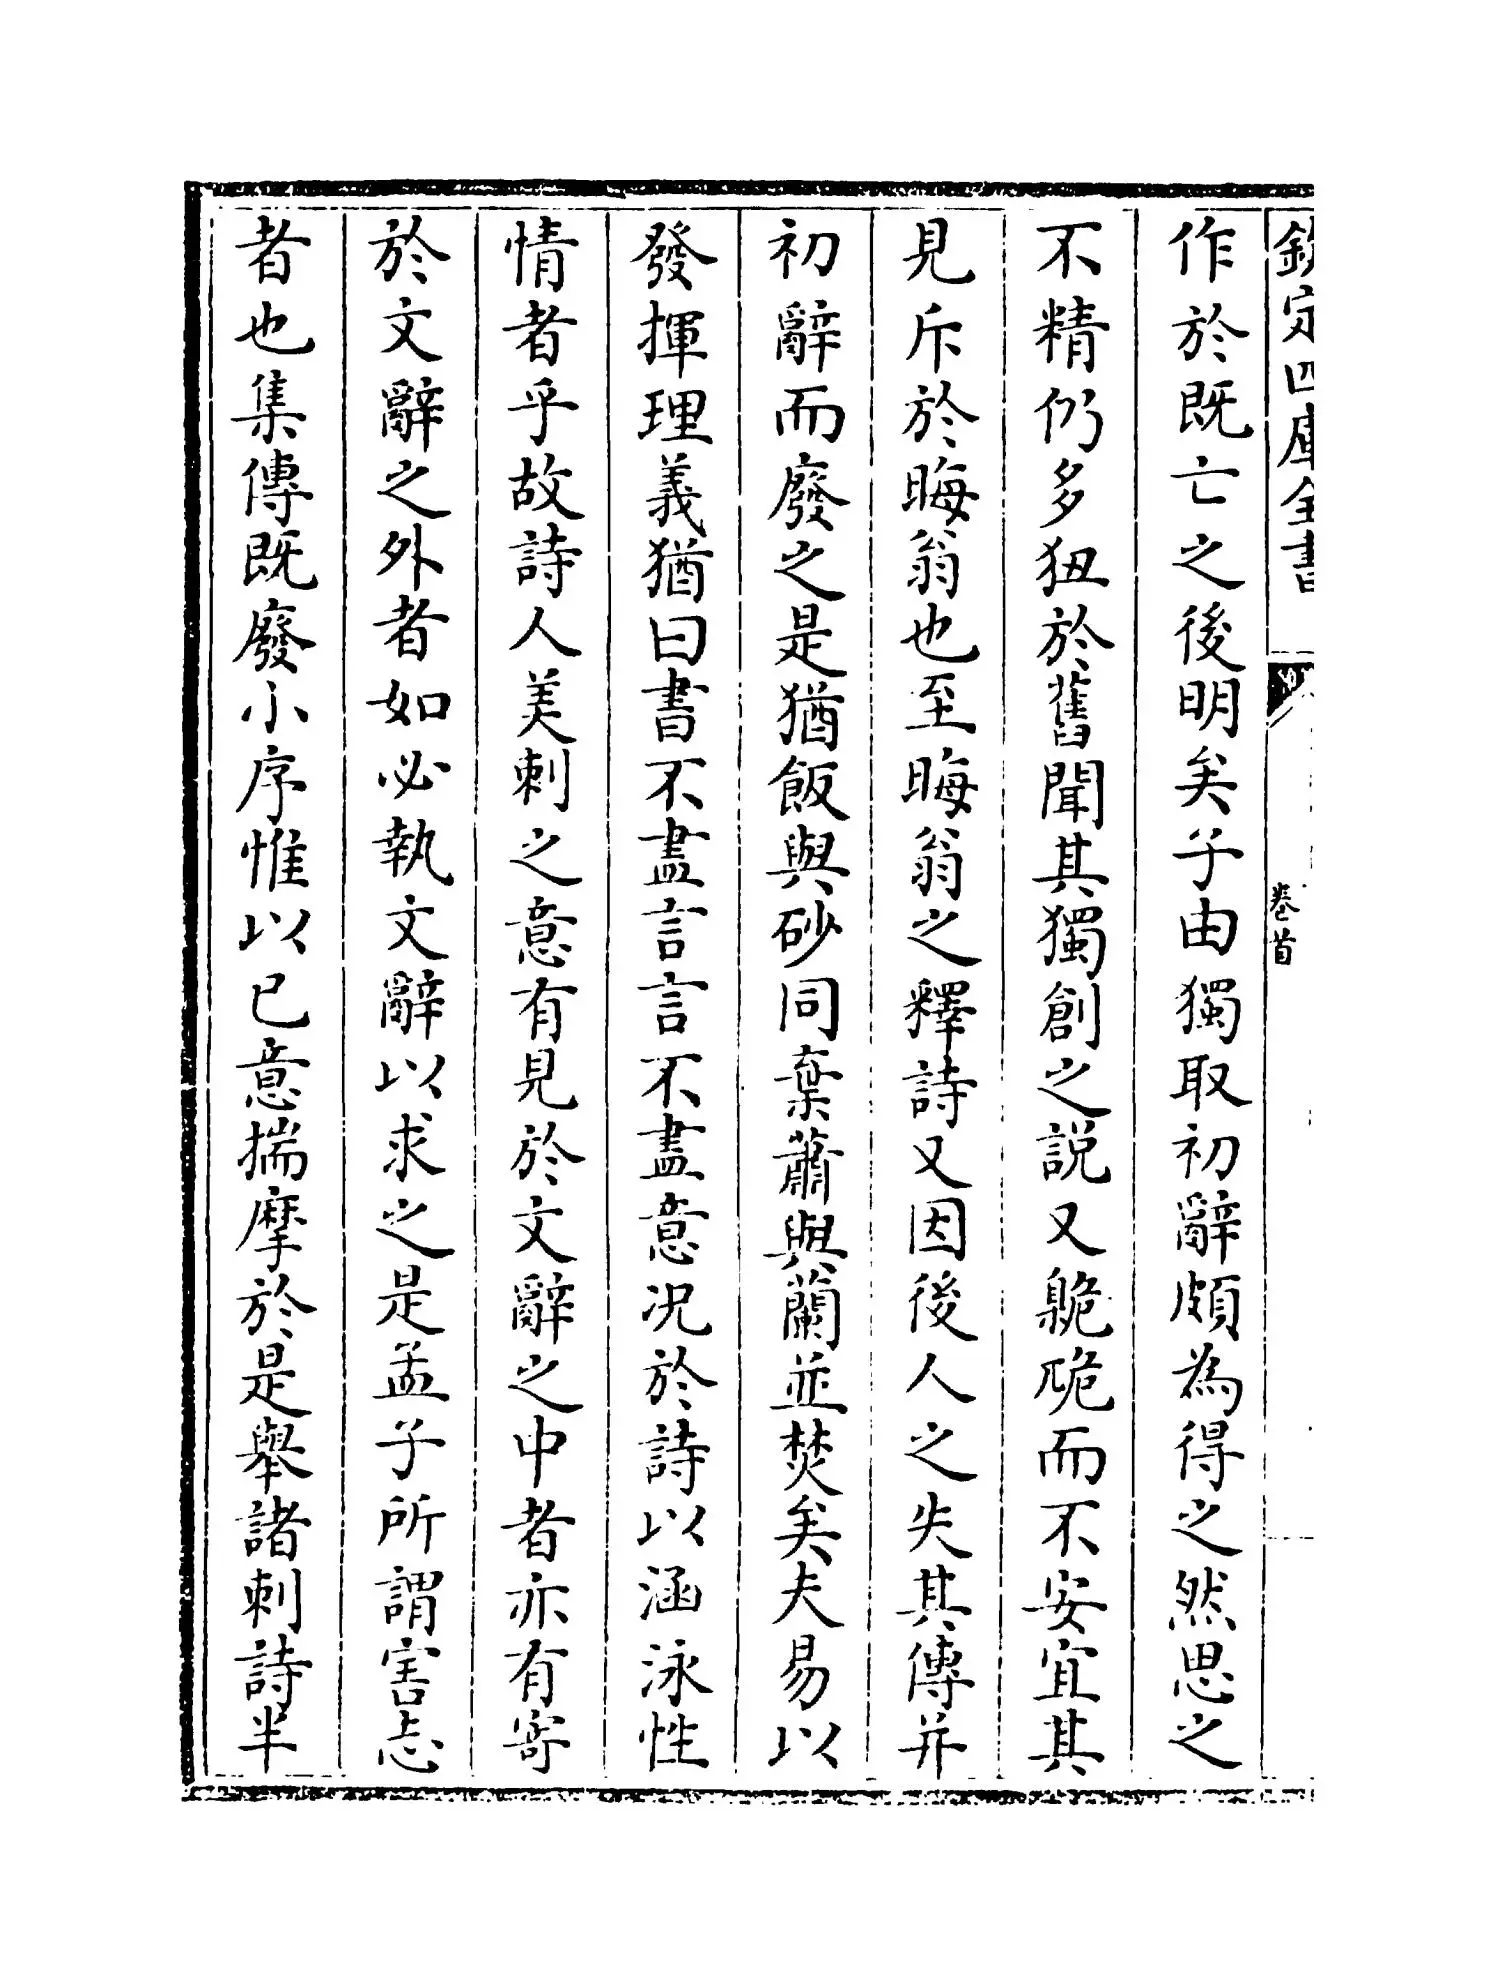 欽定四庫全書
卷首
作於既亡之後明矣子由獨取初辭頗為得之然思之
不精仍多狃於舊聞其獨創之說又臲卼而不安宜其
見斥於晦翁也至晦翁之釋詩又因後人之失其傳并
初辭而廢之是猶飯與砂同棄蕭與蘭並焚矣夫易以
發揮理義猶曰書不盡言言不盡意况於詩以涵泳性
情者乎故詩人美刺之意有見於文辭之中者亦有寄
於文辭之外者如必執文辭以求之是孟子所謂害志
者也集傳既廢小序惟以已意揣摩於是舉諸刺詩半